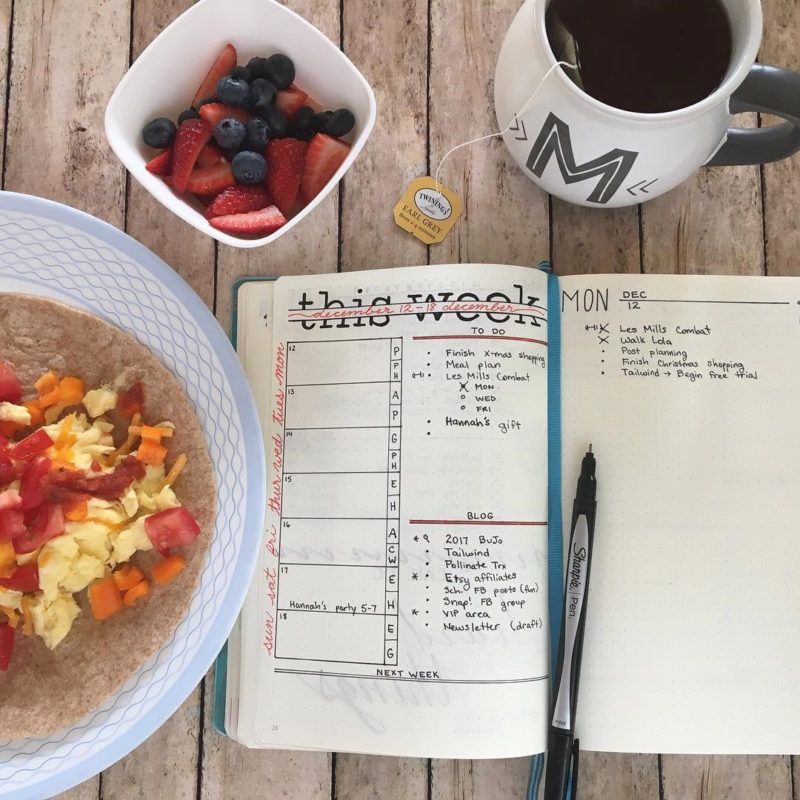 M
TWININGS
of London
EARL GREY
Brew 2-4 minutes
this week
december 12 - 18 december
mon
tues
wed
thur
fri
sat
sun
12
P
PH
13
A
P
14
G
PH
15
E
H
16
A
CW
17
E
Hannah's party 5-7
H
18
E
G
TO DO
• Finish X-mas shopping
• Meal plan
• Les Mills Combat
MON
WED
FRI
• Hannah's gift
•
BLOG
* • 2017 BuJo
• Tailwind
• Pollinate Trx
* • Etsy affiliates
• Sch. FB posts (fun)
• Snap! FB group
* • VIP area
• Newsletter (draft)
NEXT WEEK
28
MON DEC
12
X Les Mills Combat
X Walk Lola
• Post planning
• Finish Christmas shopping
• Tailwind → Begin free trial
Sharpie Pen.
FINE